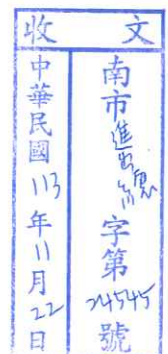 收文
南市進出字第24545號
中華民國113年11月22日